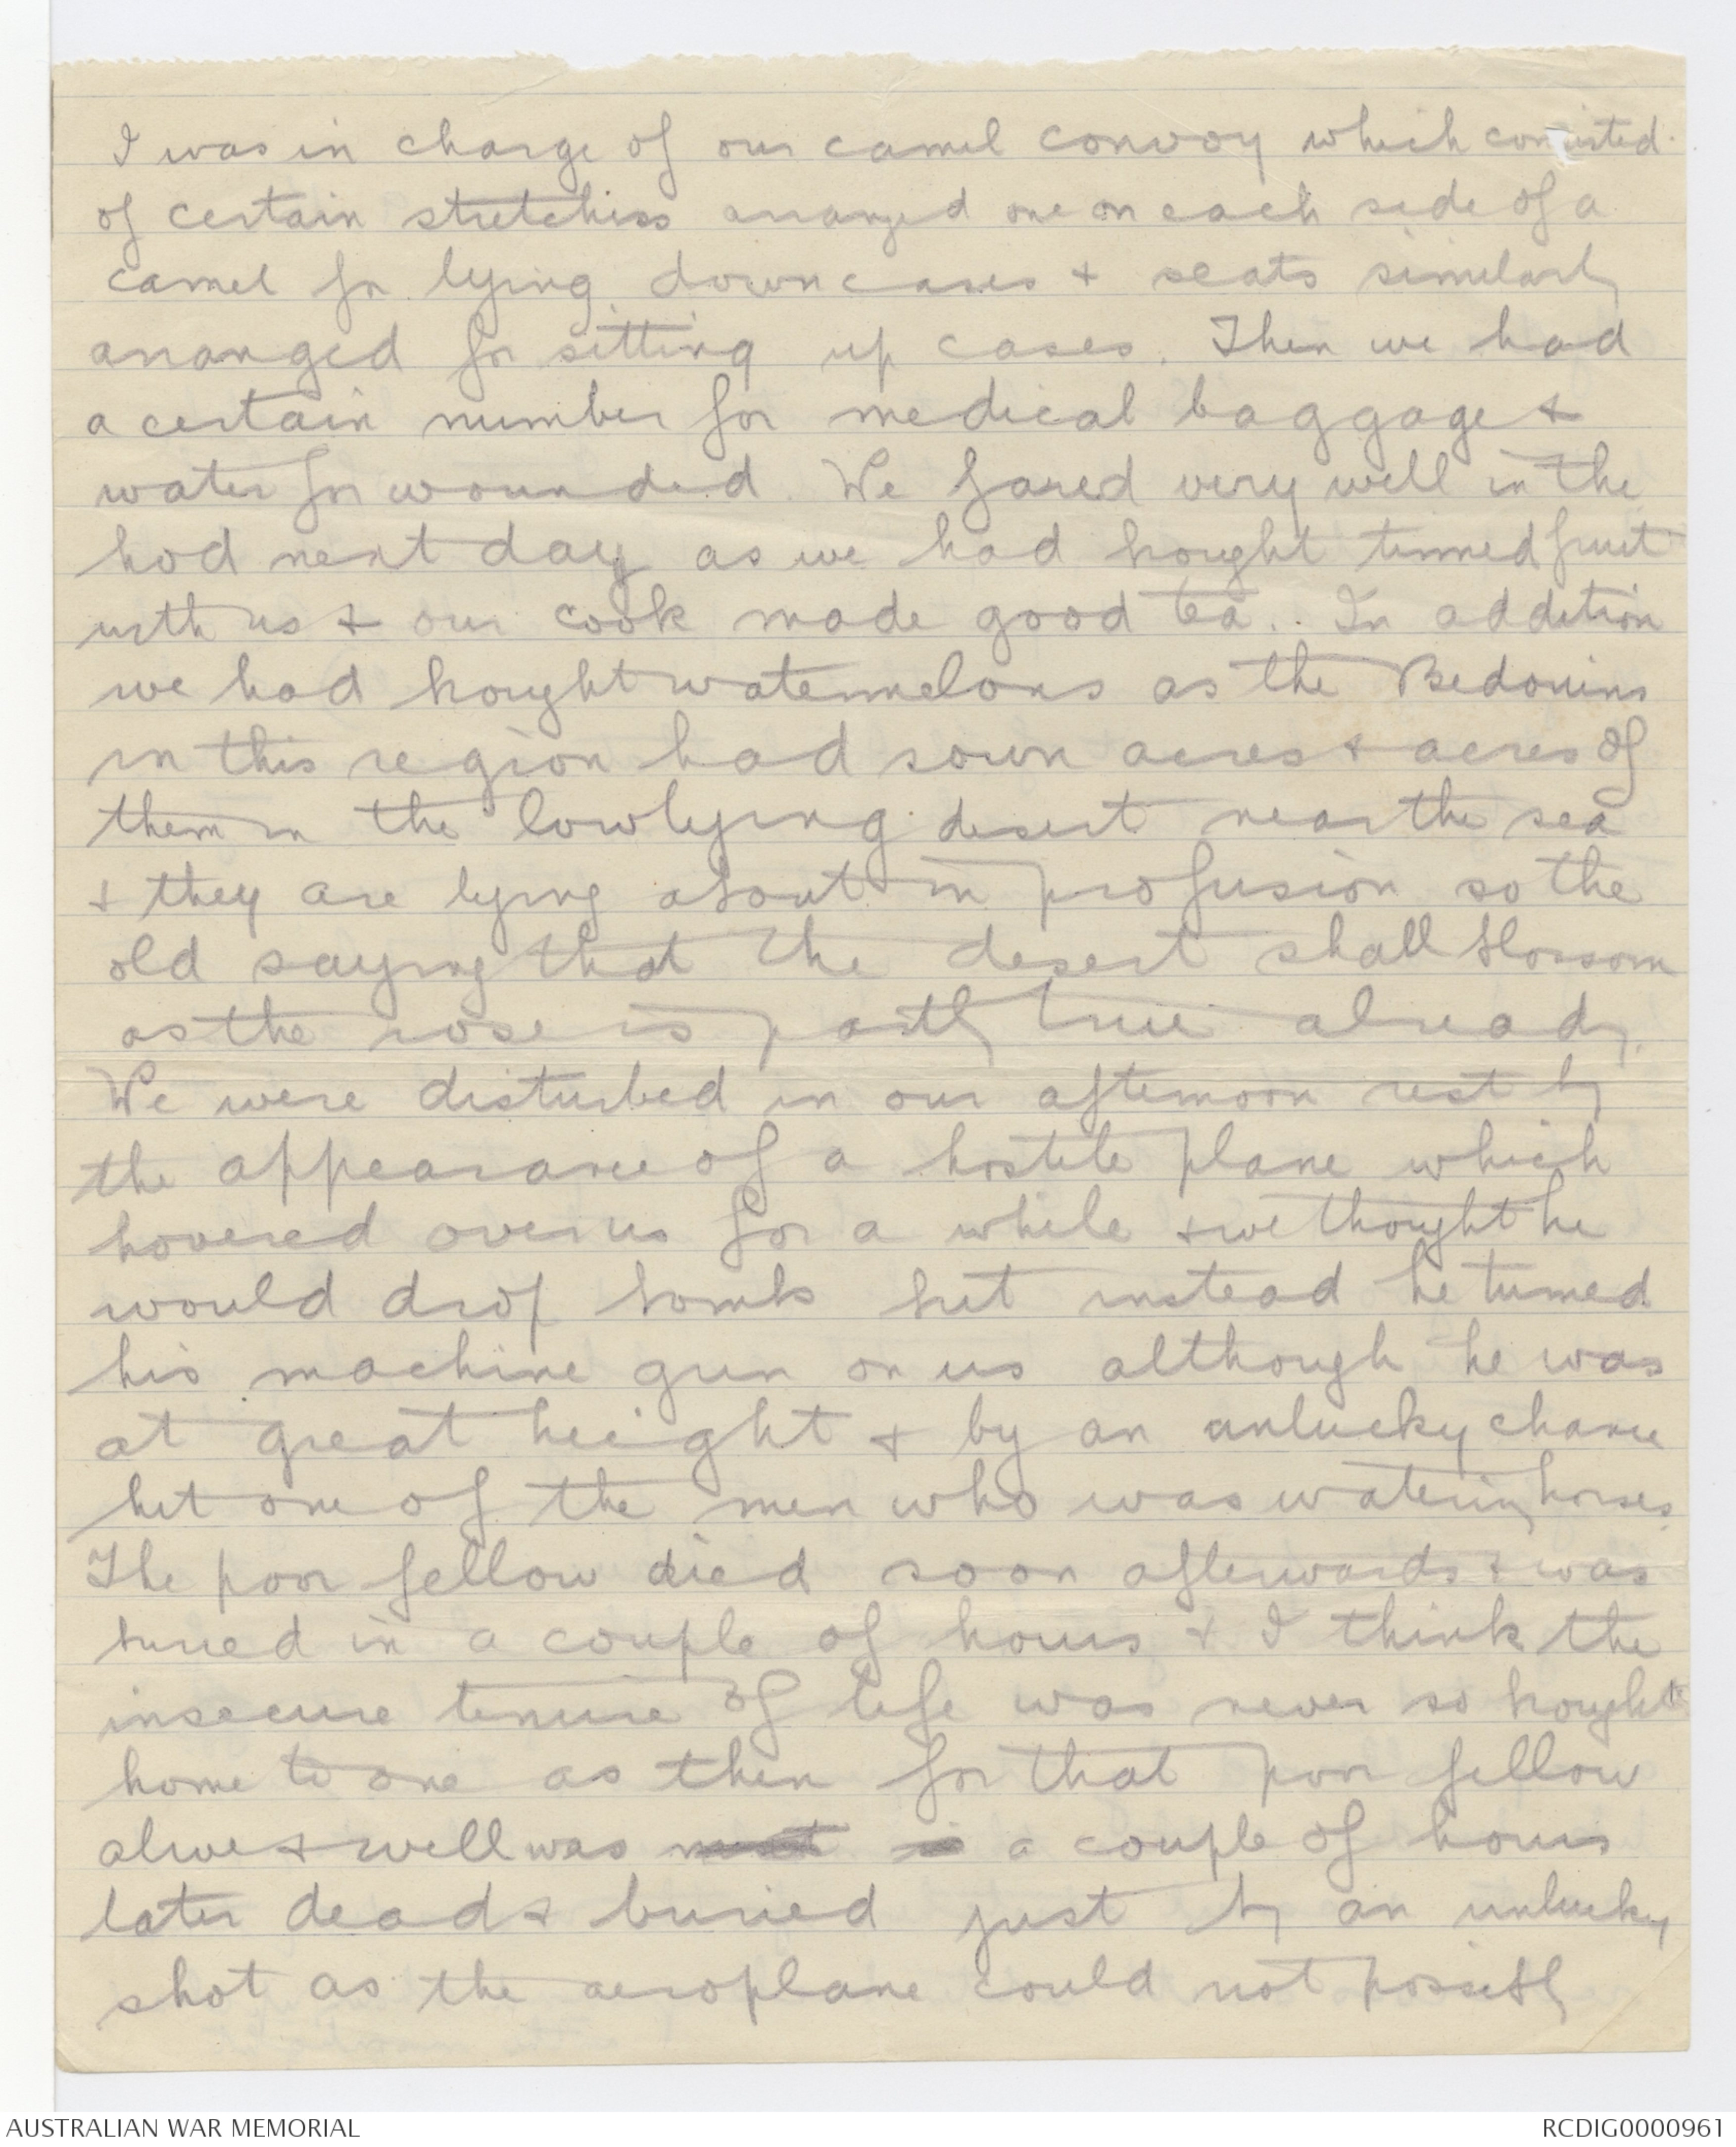 I was in charge of our camel convoy which consisted
of certain stretchers arranged one on each side of a
camel for lying down cases & seats similarly
arranged for sitting up cases. Then we had
a certain number for medical baggage &
water for wounded. We fared very well in the
hod next day as we had brought tinned fruit
with us & our cook made good tea. In addition
we had brought watermelons as the Bedouins
in this region had sown acres & acres of
them in the lowlying desert near the sea
& they are lying about in profusion so the
old saying that the desert shall blossom
as the rose is partly true already.
We were disturbed in our afternoon rest by
the appearance of a hostile plane which
hovered over us for a while & we thought he
would drop bombs but instead he turned
his machine gun on us although he was
at great height & by an unlucky chance
hit one of the men who was watering horses.
The poor fellow died soon afterwards & was
buried in a couple of hours & I think the
insecure tenure of life was never so brought
home to one as then for that poor fellow
alive & well was a couple of hours
later dead & buried just by an unlucky
shot as the aeroplane could not possibly
AUSTRALIAN WAR MEMORIAL
RCDIG0000961